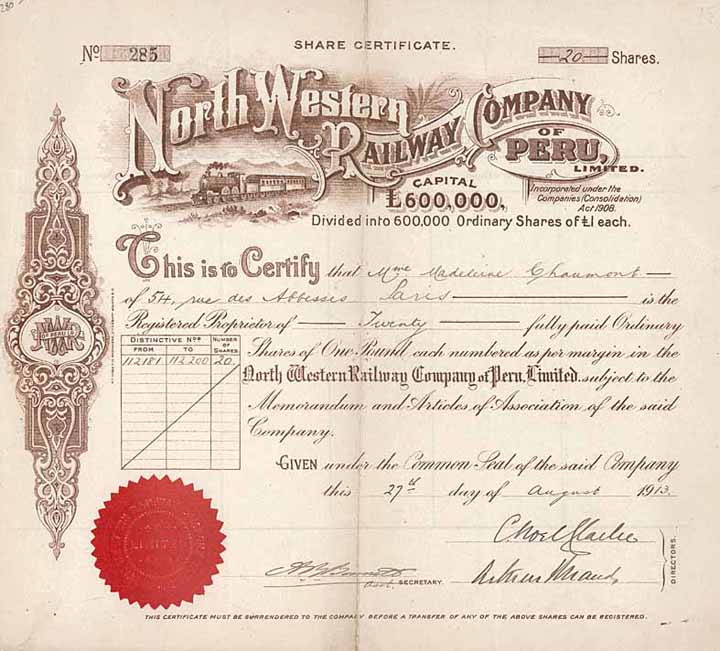 280
SHARE CERTIFICATE.
No 285
20 Shares.
North Western
Railway Company
OF
PERU,
LIMITED.
CAPITAL
£600,000,
Incorporated under the
Companies (Consolidation)
Act 1908.
Divided into 600,000 Ordinary Shares of £1 each.
This is to Certify that Mme Madeleine Chaumont
of 54, rue des Abbesses Paris is the
Registered Proprietor of Twenty fully paid Ordinary
DISTINCTIVE Nos NUMBER OF SHARES
FROM TO
112181 112200 20
Shares of One Pound each numbered as per margin in the
North Western Railway Company of Peru, Limited. subject to the
Memorandum and Articles of Association of the said
Company.
GIVEN under the Common Seal of the said Company
this 27th day of August 1913.
OF PERU LD
Asst. SECRETARY.
DIRECTORS.
THIS CERTIFICATE MUST BE SURRENDERED TO THE COMPANY BEFORE A TRANSFER OF ANY OF THE ABOVE SHARES CAN BE REGISTERED.